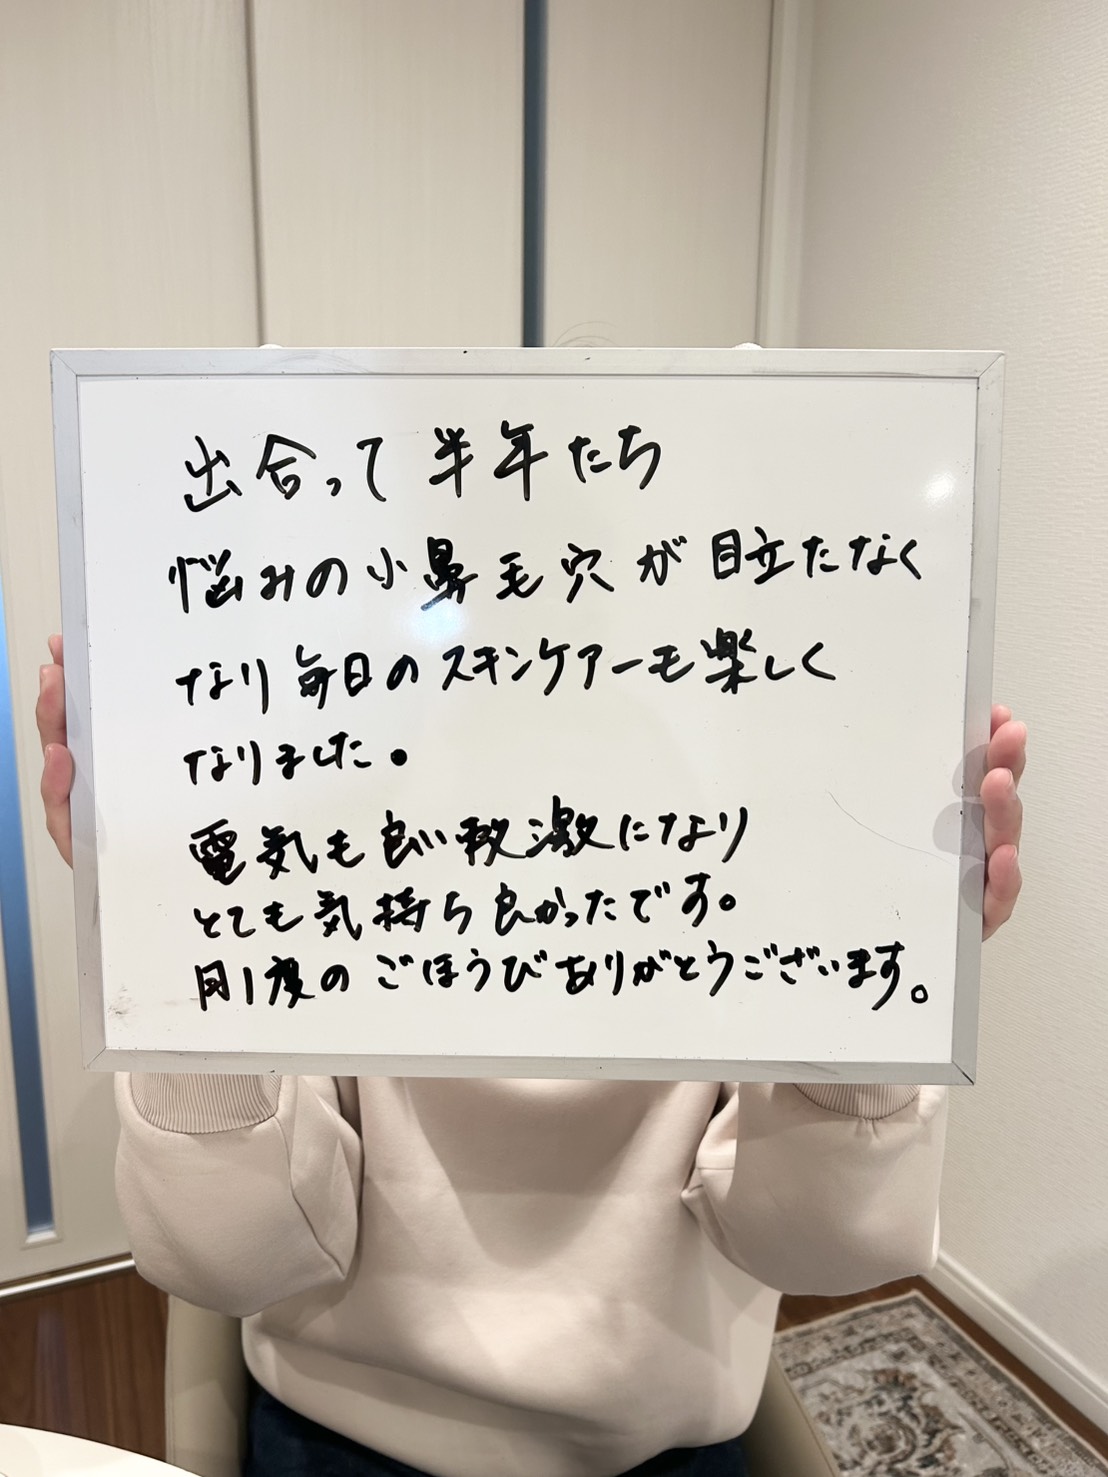 出合って半年たち
悩みの小鼻毛穴が目立たなく
なり毎日のスキンケアーも楽しく
なりました。
電気も良い刺激になり
とても気持ち良かったです。
月1度のごほうびありがとうございます。